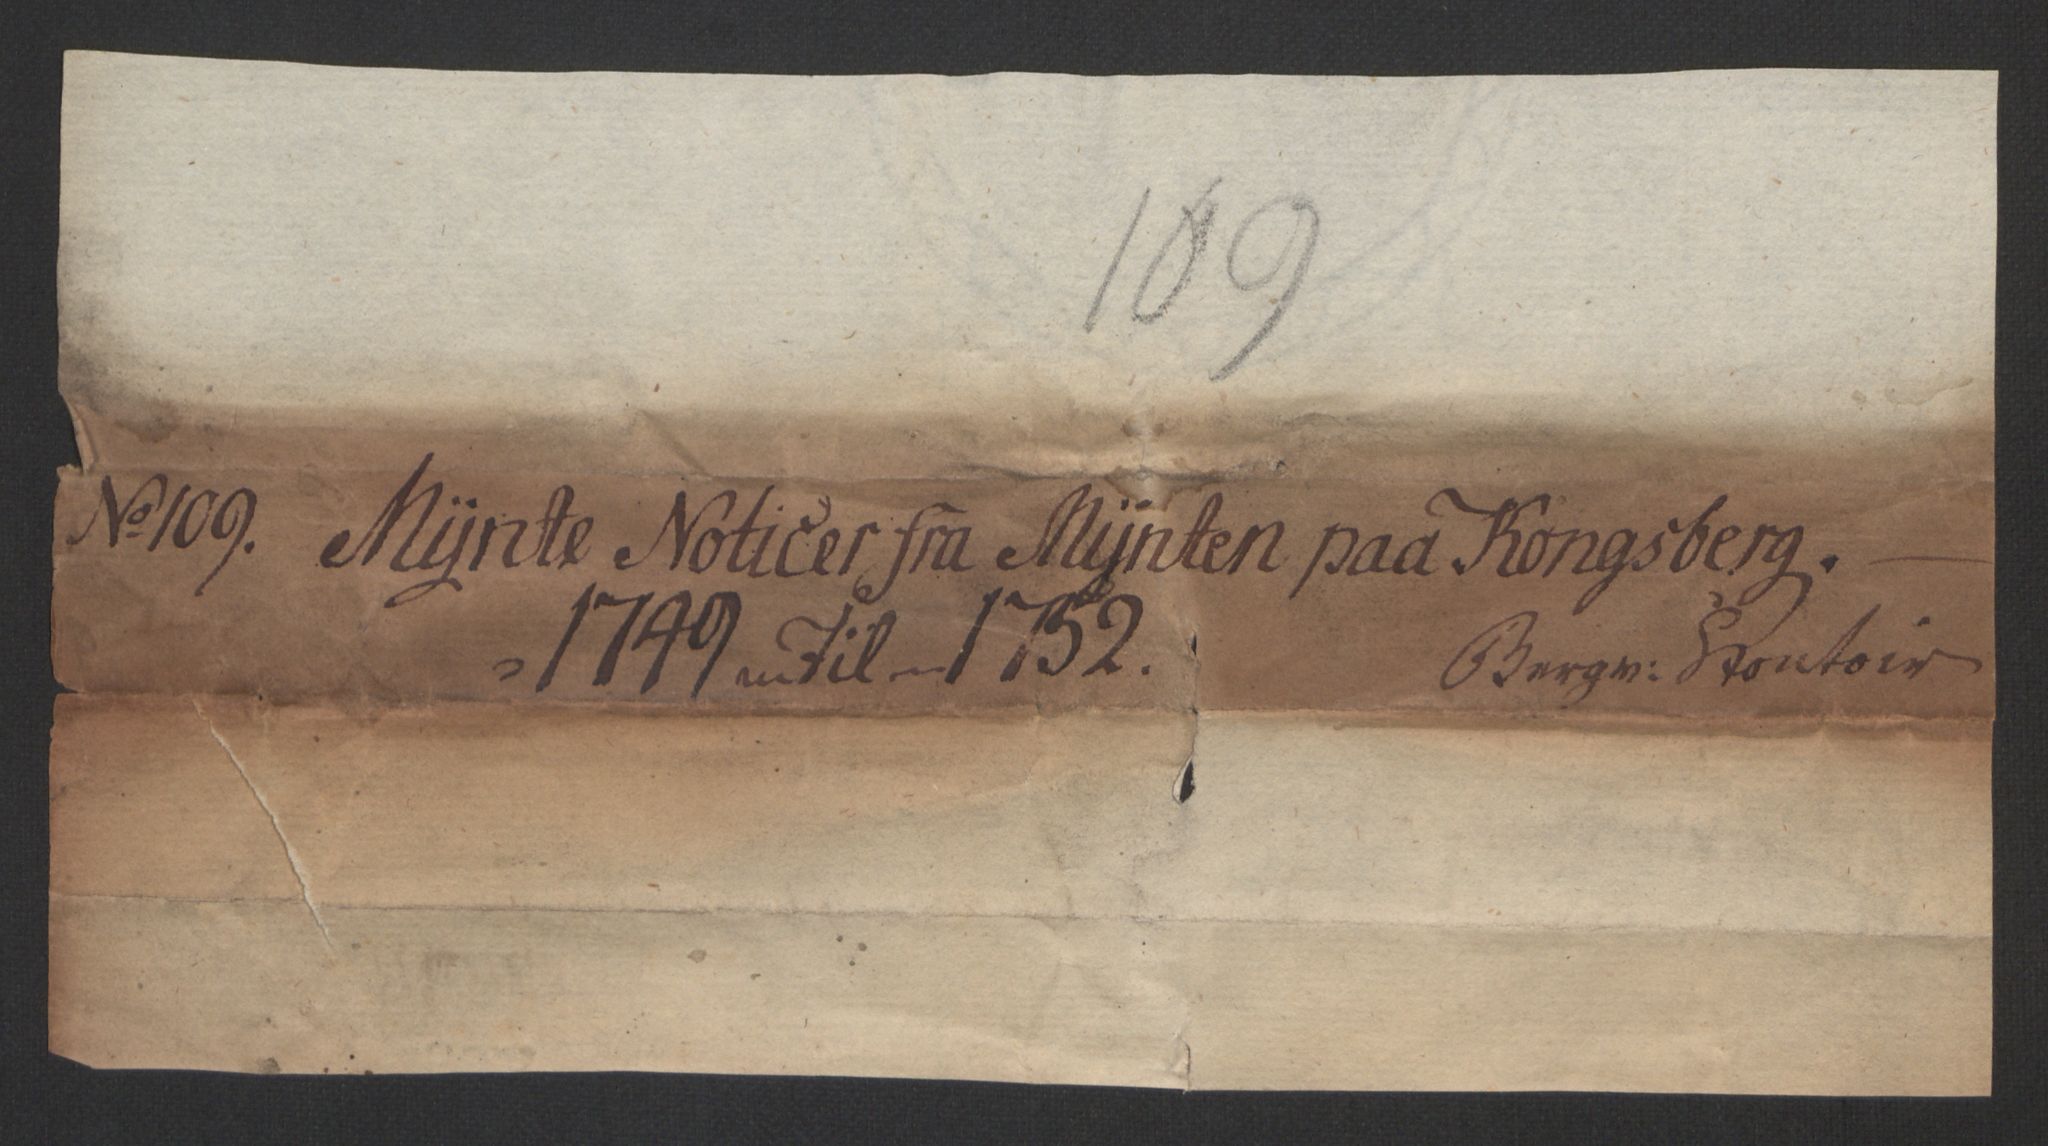 109
No 109. Mÿnte Noticer fra Mÿnten paa Kongsberg. —
1749 Til 1752.
Bergv: Contoir